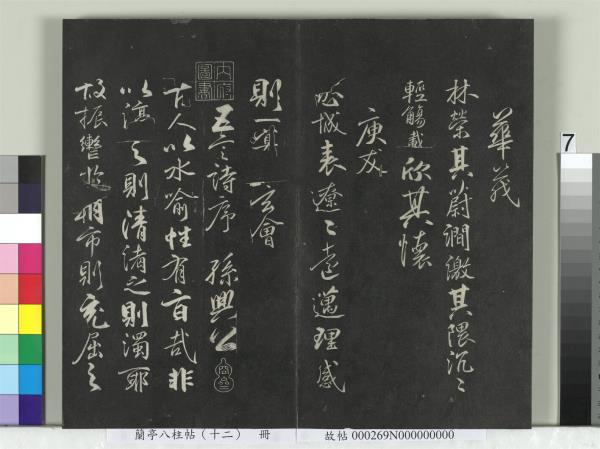 華茂
林榮其蔚澗激其隈汎〻
輕觴載欣其懷
庾友
馳域表遼〻遠邁理感
則一冥 玄會
五言詩序 孫興公
古人以水喻性有旨哉非
以渟之則清淆之則濁耶
故振轡於朝市則充屈之
內府圖書
7
蘭亭八柱帖（十二） 冊
故帖 000269N000000000